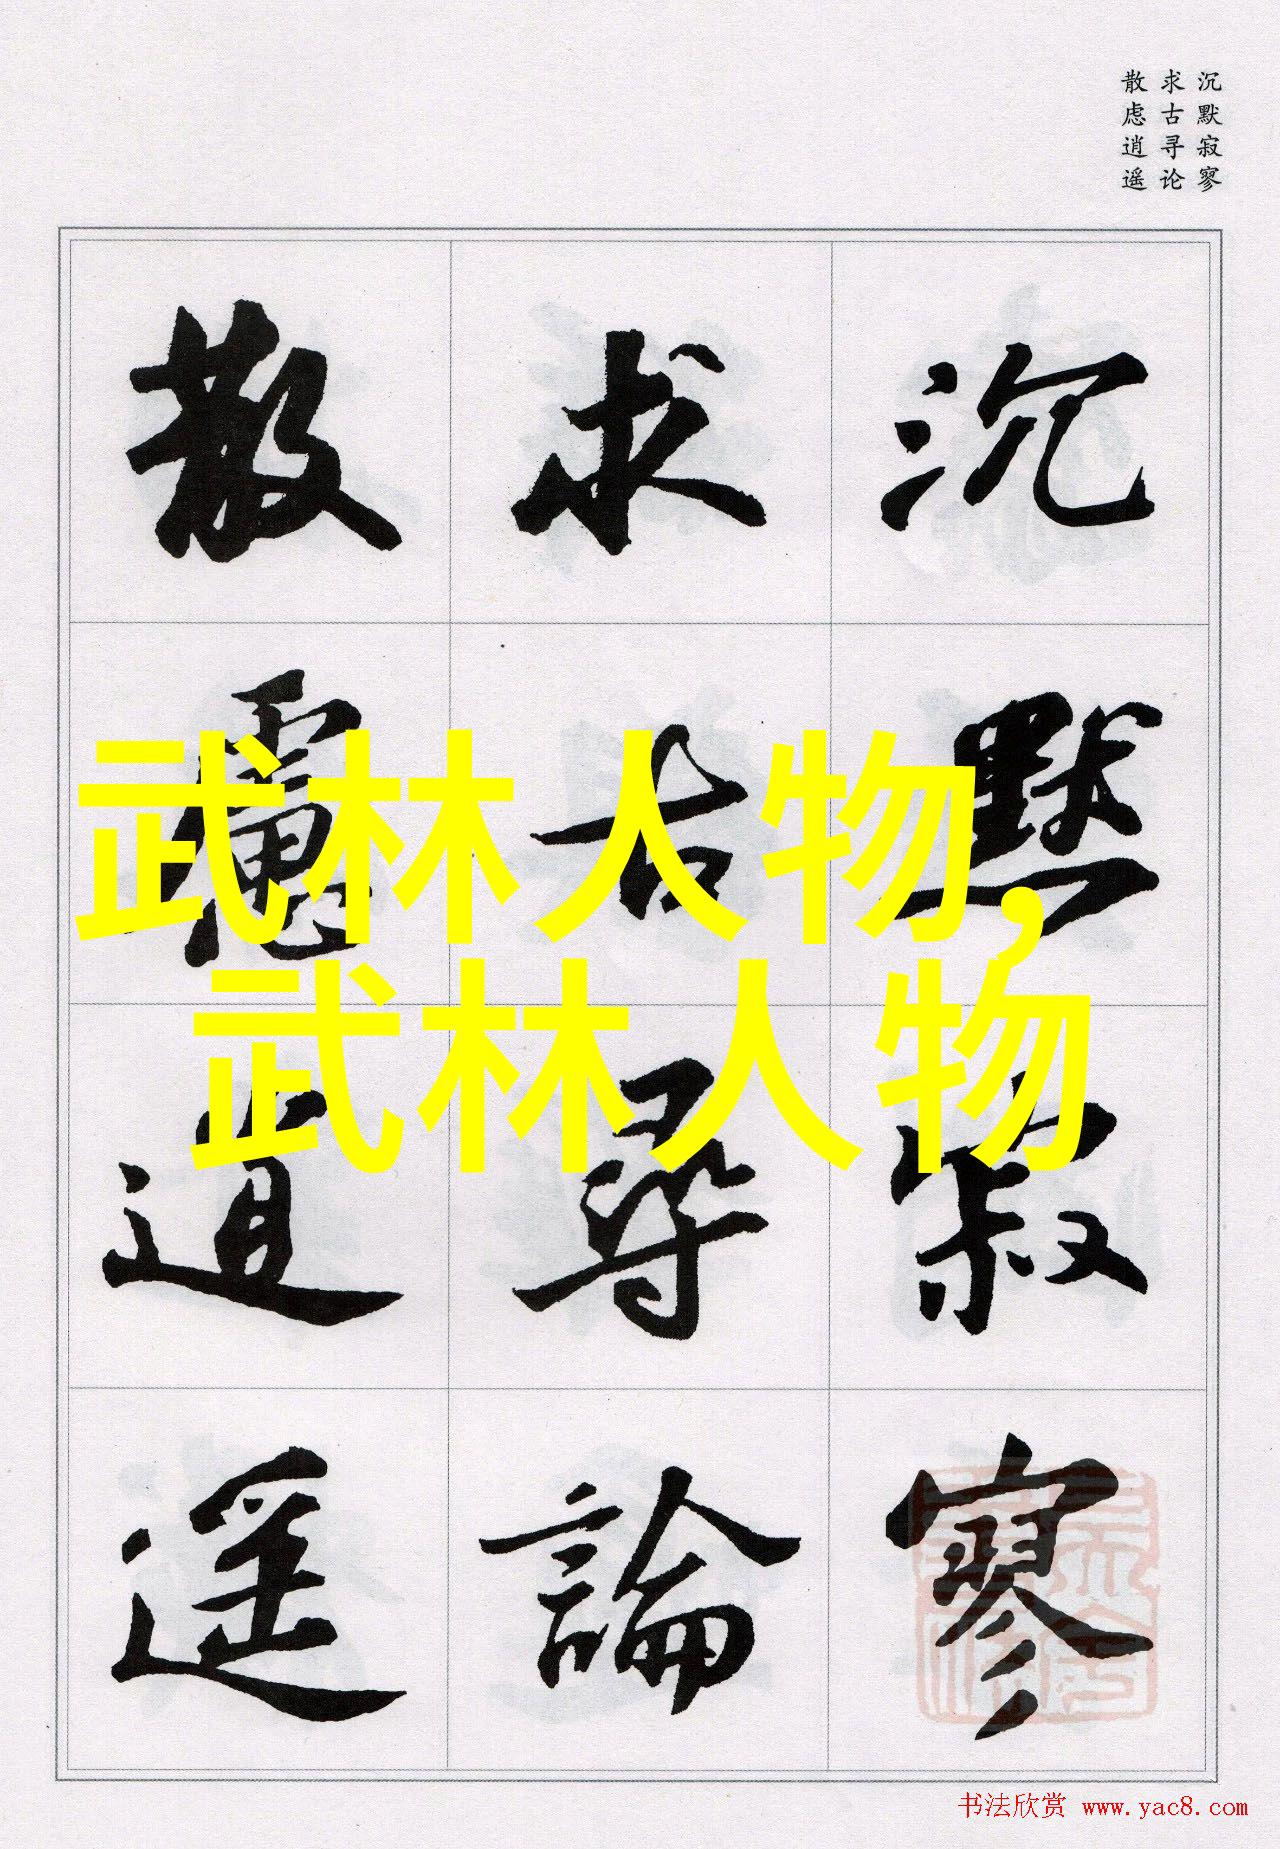 沉默寂寥
求古寻论
散虑逍遥
沉默寂寥
求古尋論
散慮逍遥
武林人物,
武林人物
书法欣赏 www.yac8.com